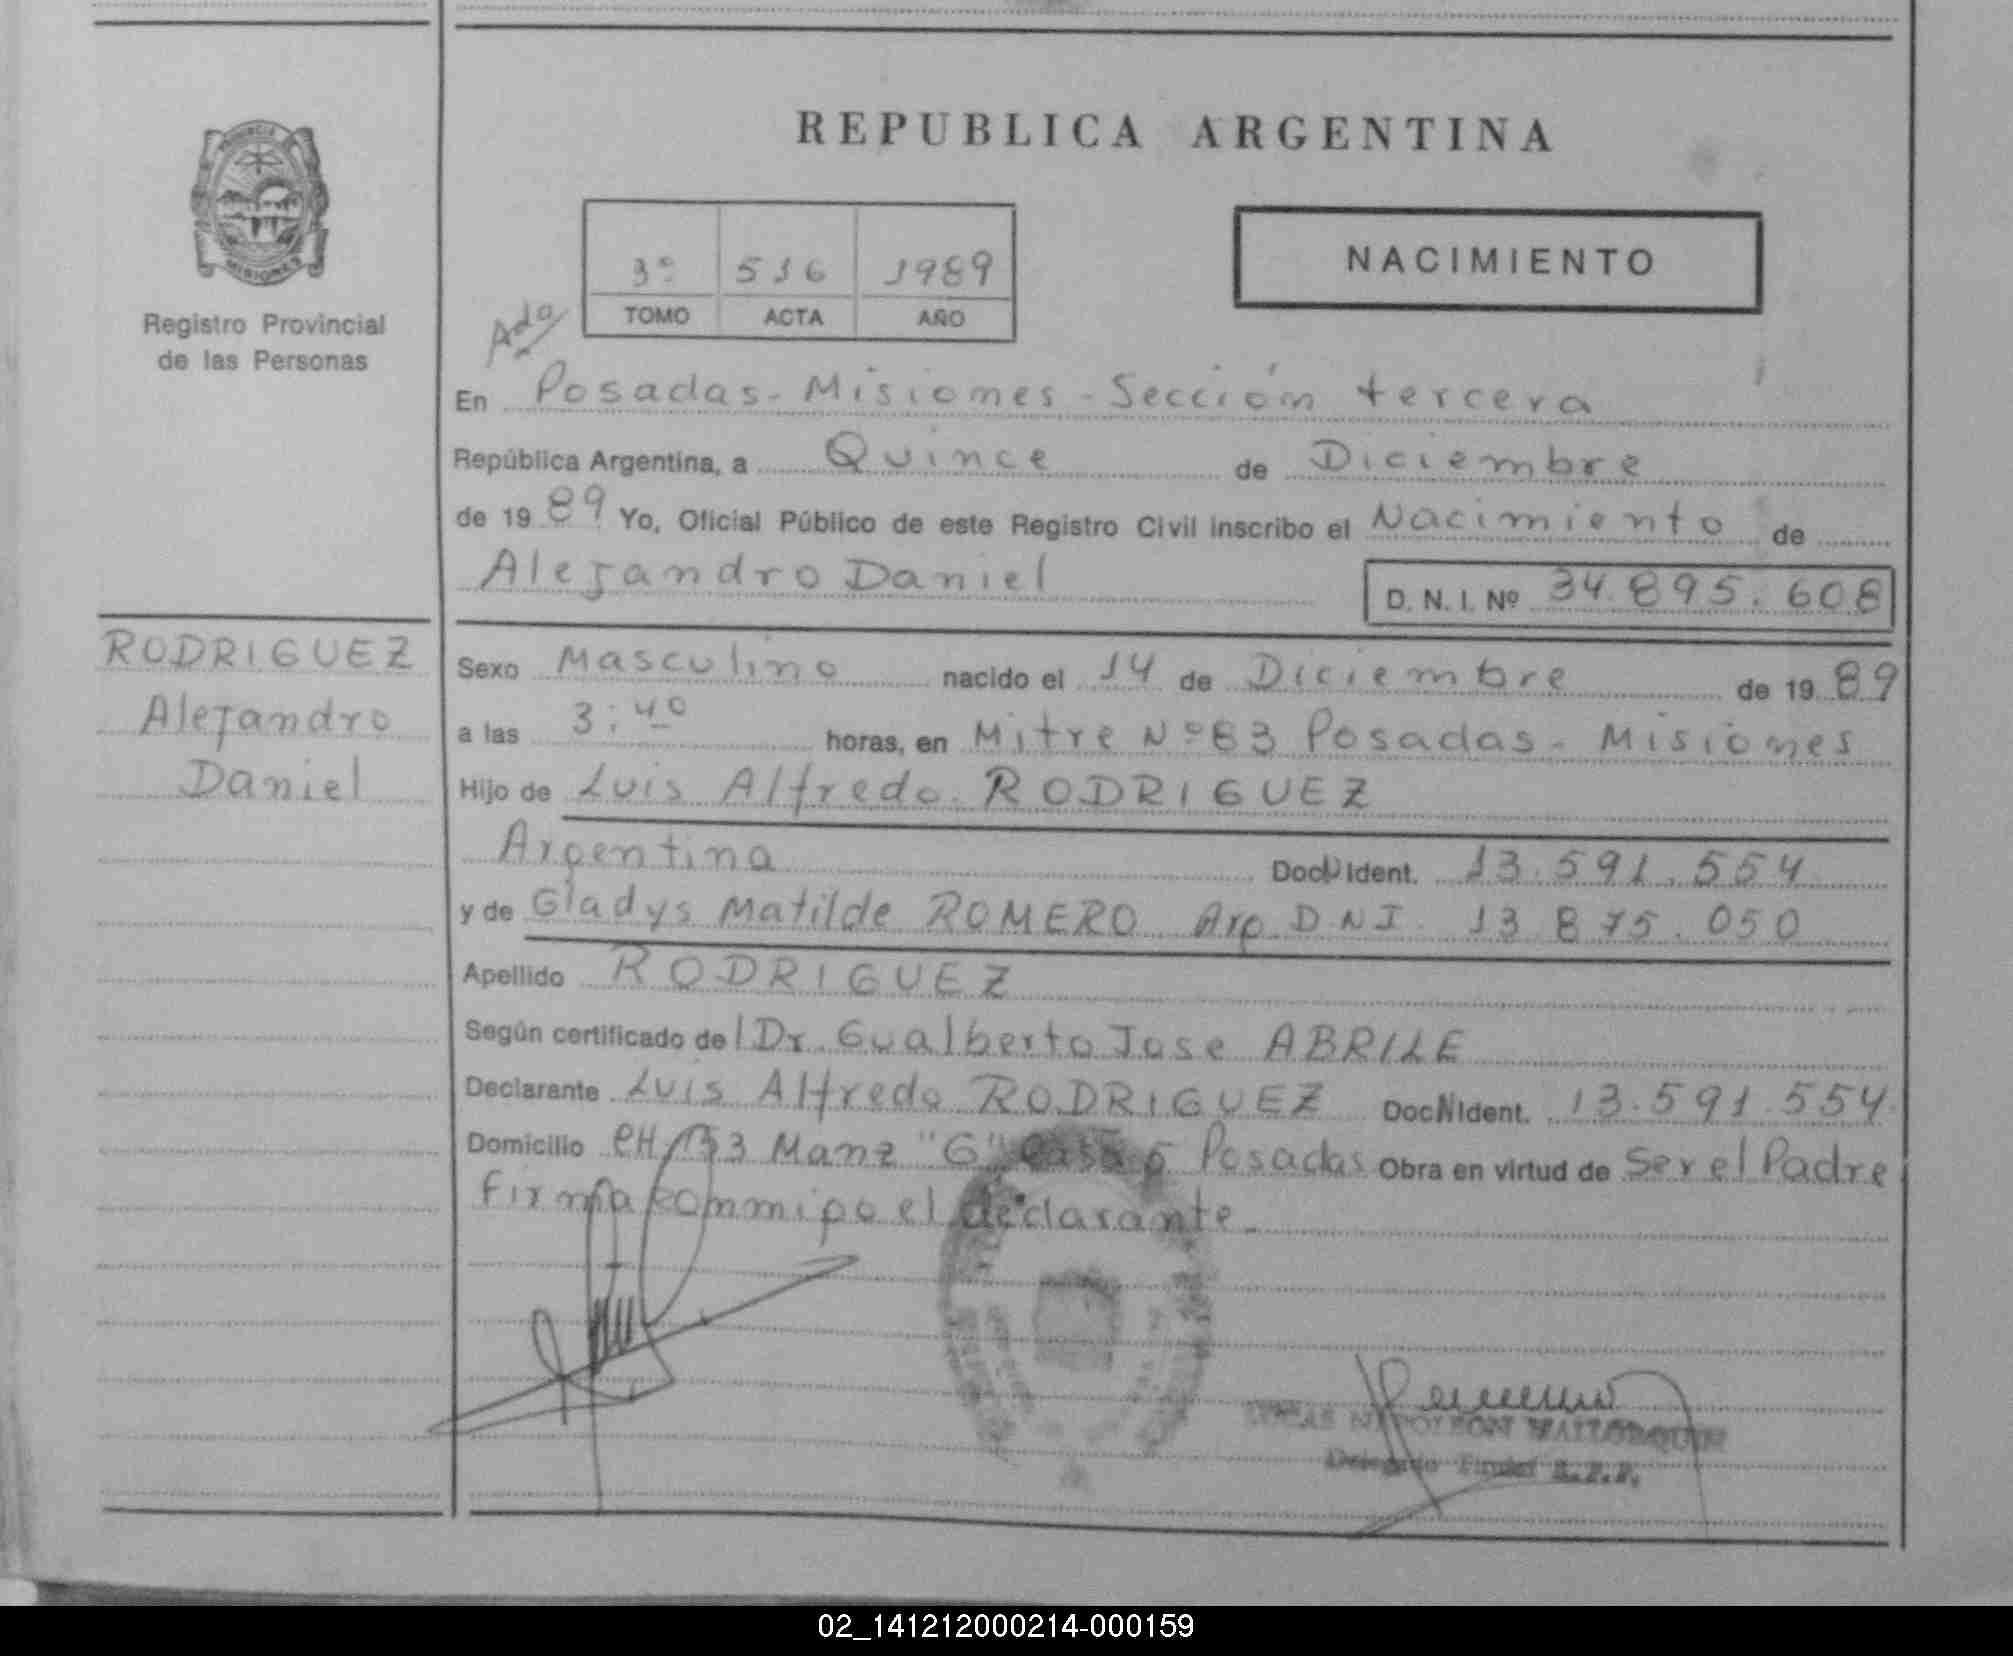 REPUBLICA ARGENTINA
PROVINCIA
MISIONES
Registro Provincial
de las Personas
3º 516 1989
TOMO ACTA AÑO
NACIMIENTO
En Posadas - Misiones - Sección tercera
República Argentina, a Quince de Diciembre
de 19 89 Yo, Oficial Público de este Registro Civil inscribo el Nacimiento de
Alejandro Daniel D. N. I. Nº 34.895.608
RODRIGUEZ
Alejandro
Daniel
Sexo Masculino nacido el 14 de Diciembre de 19 89
a las 3:40 horas, en Mitre Nº 83 Posadas - Misiones
Hijo de Luis Alfredo RODRIGUEZ
Argentina Doc N Ident. 13.591.554
y de Gladys Matilde ROMERO Arg D N I. 13.875.050
Apellido RODRIGUEZ
Según certificado del Dr. Gualberto Jose ABRILE
Declarante Luis Alfredo RODRIGUEZ Doc N Ident. 13.591.554
Domicilio CH 133 Manz "G" Casa 5 Posadas Obra en virtud de Ser el Padre
Firma conmigo el declarante.
LUCAS NAPOLEON MALLORQUIN
Delegado
02_141212000214-000159